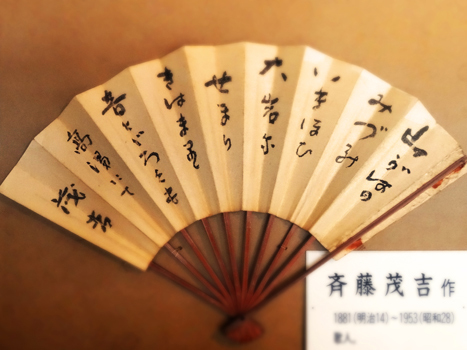 山がはの
みづの
いきほひ
大岩に
せまり
きはまり
音とゞろくも
高湯にて
茂吉
斉藤茂吉 作
1881(明治14)～1953(昭和28)
歌人。